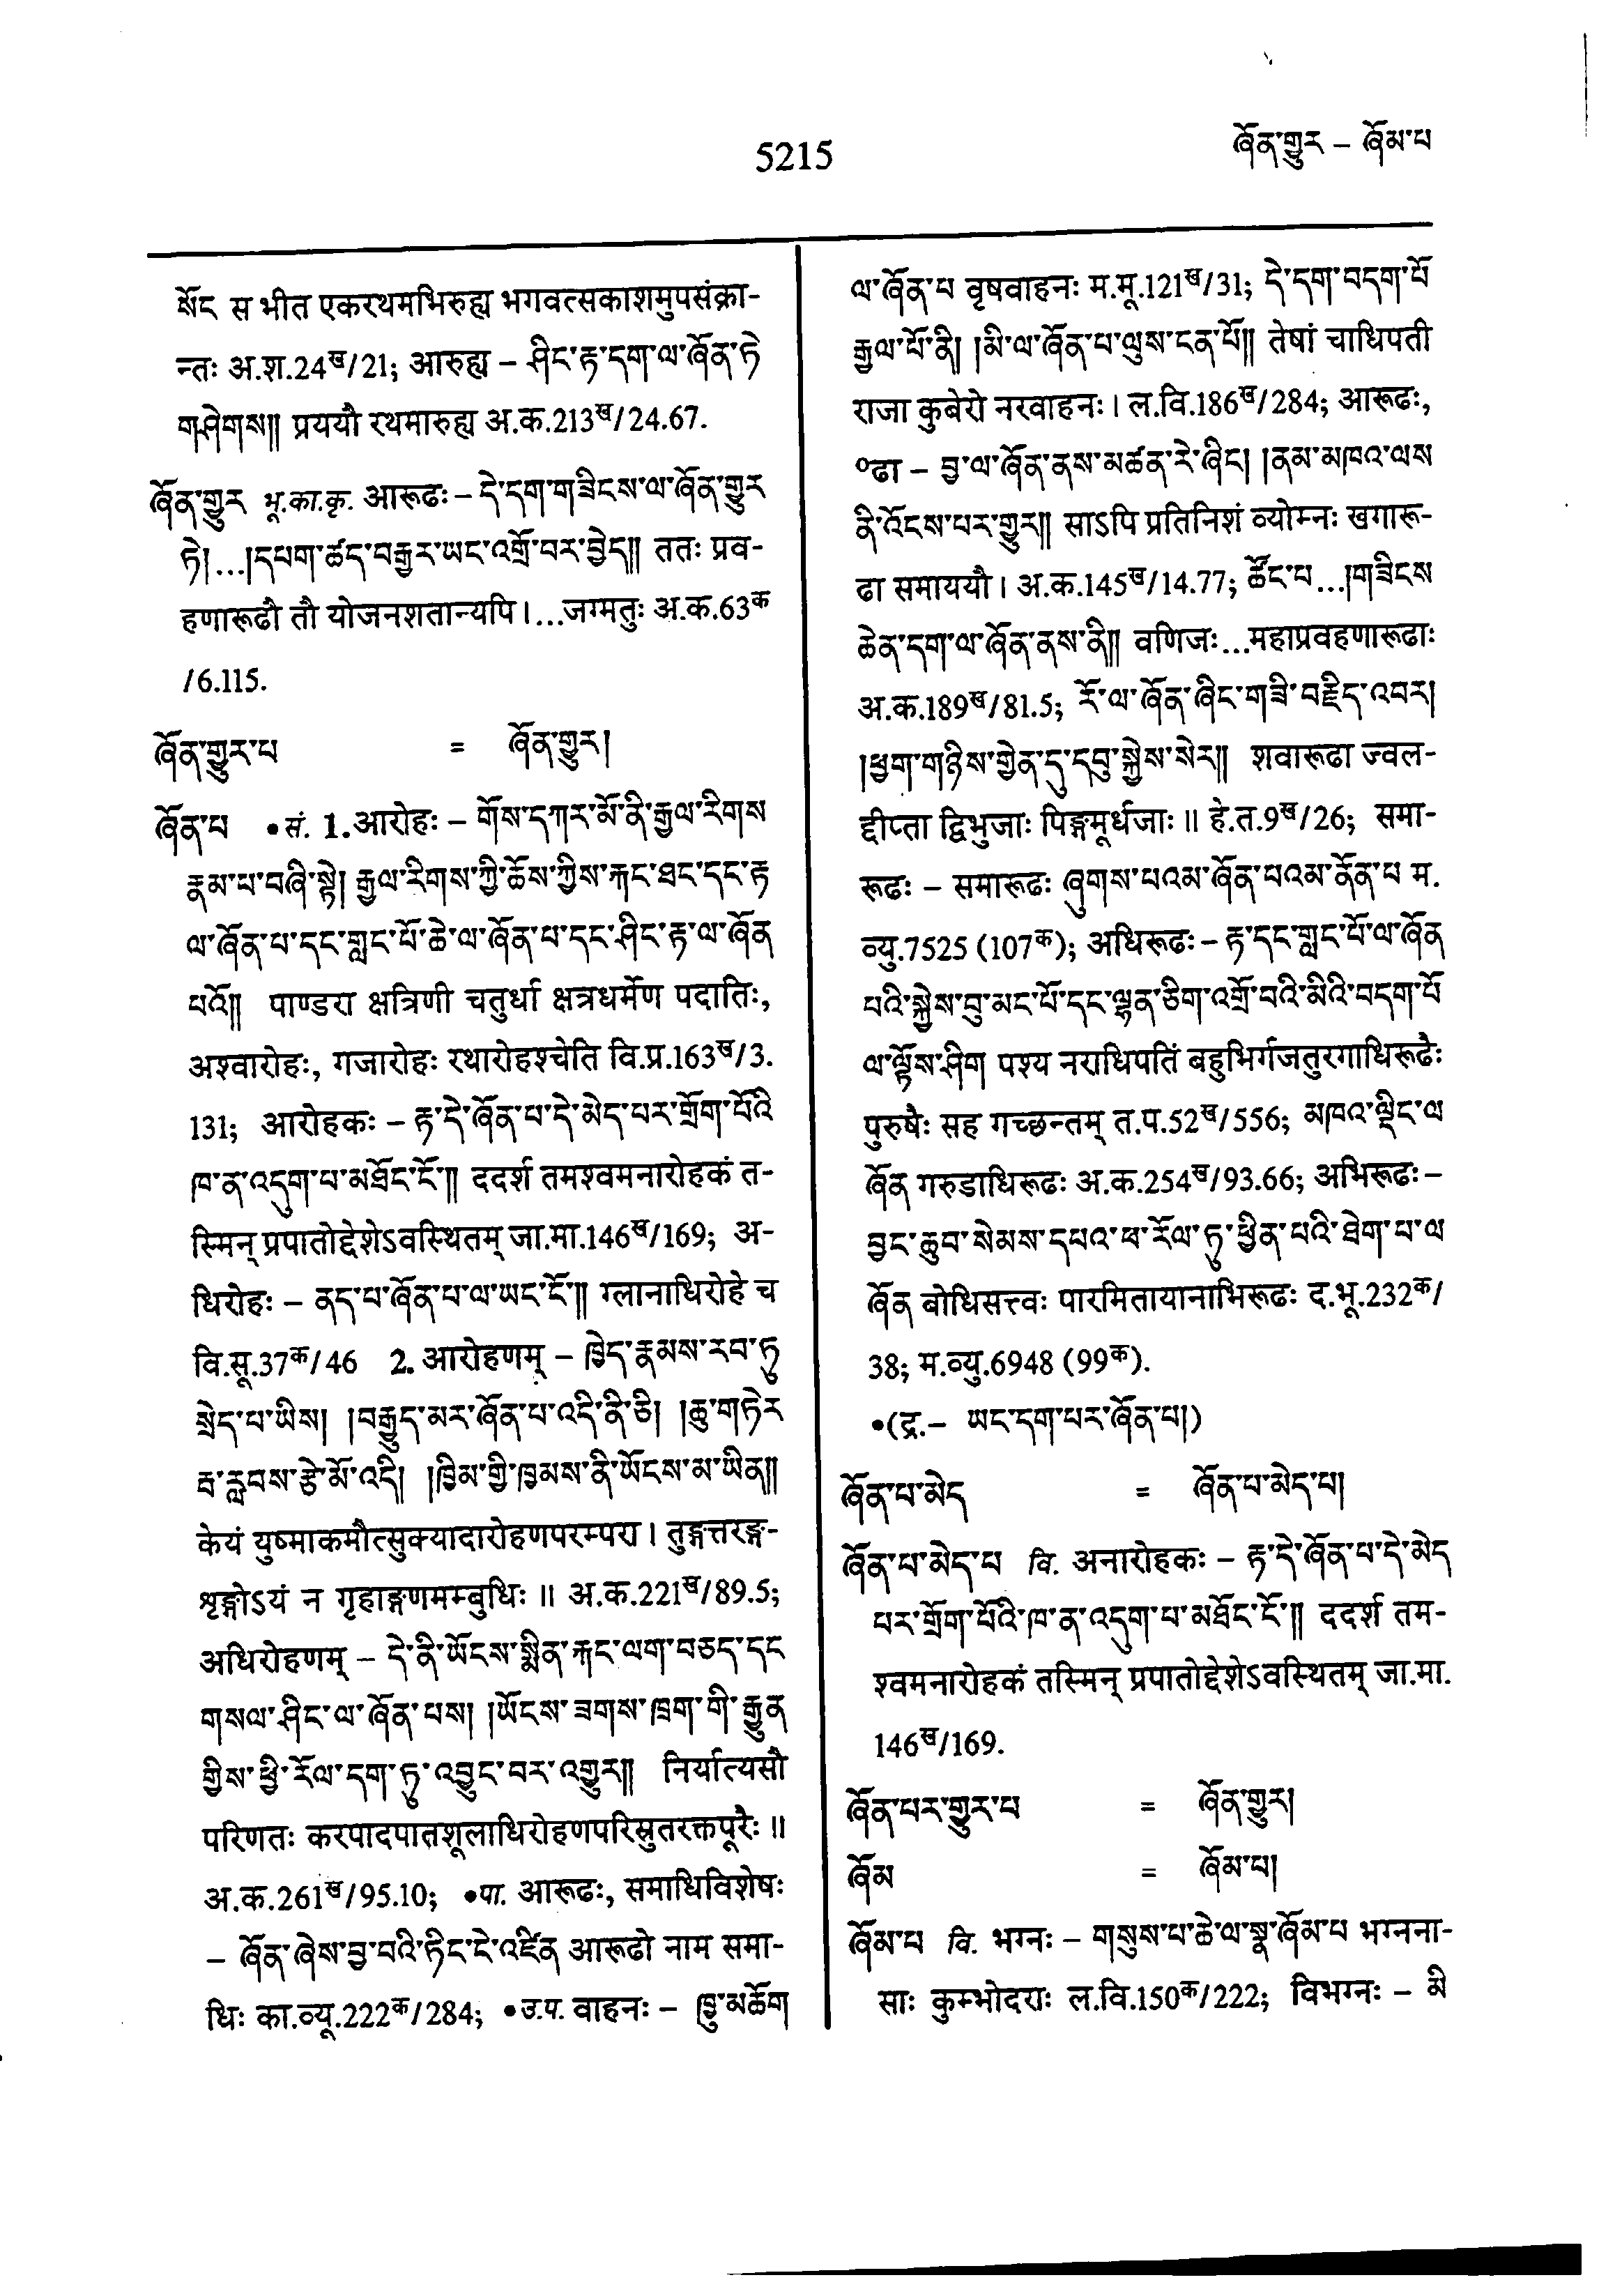 5215
ཞོན་གྱུར – ཞོམ་པ
སོང स भीत एकरथमभिरुह्य भगवत्सकाशमुपसंक्रा-
न्तः अ.श.24ख/21; आरुह्य – ཤིང་རྟ་དག་ལ་ཞོན་ཏེ
གཤེགས།། प्रययौ रथमारुह्य अ.क.213ख/24.67.
ཞོན་གྱུར भू.का.कृ. आरूढः – དེ་དག་གཟིངས་ལ་ཞོན་གྱུར
ཏེ།...།དཔག་ཚད་བརྒྱར་ཡང་འགྲོ་བར་བྱེད།། ततः प्रव-
हणारूढौ तौ योजनशतान्यपि।...जग्मतुः अ.क.63क
/6.115.
ཞོན་གྱུར་པ = ཞོན་གྱུར།
ཞོན་པ •सं. 1. आरोहः – གོས་དཀར་མོ་ནི་རྒྱལ་རིགས
རྣམ་པ་བཞི་སྟེ། རྒྱལ་རིགས་ཀྱི་ཆོས་ཀྱིས་རྐང་ཐང་དང་རྟ
ལ་ཞོན་པ་དང་གླང་པོ་ཆེ་ལ་ཞོན་པ་དང་ཤིང་རྟ་ལ་ཞོན
པའོ།། पाण्डरा क्षत्रिणी चतुर्धा क्षत्रधर्मेण पदातिः,
अश्वारोहः, गजारोहः रथारोहश्चेति वि.प्र.163ख/3.
131; आरोहकः – རྟ་དེ་ཞོན་པ་དེ་མེད་པར་གྲོག་པོའི
ཁ་ན་འདུག་པ་མཐོང་ངོ་།། ददर्श तमश्वमनारोहकं त-
स्मिन् प्रपातोद्देशेऽवस्थितम् जा.मा.146ख/169; अ-
धिरोहः – ནད་པ་ཞོན་པ་ལ་ཡང་ངོ་།། ग्लानाधिरोहे च
वि.सू.37क/46 2. आरोहणम् – ཁྱེད་རྣམས་རབ་ཏུ
སྲེད་པ་ཡིས། །བརྒྱུད་མར་ཞོན་པ་འདི་ནི་ཅི། །ཆུ་གཏེར
རྦ་རླབས་རྩེ་མོ་འདི། །ཁྱིམ་གྱི་ཁྱམས་ནི་ཡོངས་མ་ཡིན།།
केयं युष्माकमौत्सुक्यादारोहणपरम्परा। तुङ्गत्तरङ्ग-
शृङ्गोऽयं न गृहाङ्गणमम्बुधिः॥ अ.क.221ख/89.5;
अधिरोहणम् – དེ་ནི་ཡོངས་སྨིན་རྐང་ལག་བཅད་དང
གསལ་ཤིང་ལ་ཞོན་པས། །ཡོངས་ཟགས་ཁྲག་གི་རྒྱུན
གྱིས་ཕྱི་རོལ་དག་ཏུ་འབྱུང་བར་འགྱུར།། निर्यात्यसौ
परिणतः करपादपातशूलाधिरोहणपरिस्रुतरक्तपूरैः॥
अ.क.261ख/95.10; •पा. आरूढः, समाधिविशेषः
– ཞོན་ཞེས་བྱ་བའི་ཏིང་ངེ་འཛིན आरूढो नाम समा-
धिः का.व्यू.222क/284; •उ.प. वाहनः – ཁྱུ་མཆོག
ལ་ཞོན་པ वृषवाहनः म.मू.121ख/31; དེ་དག་བདག་པོ
རྒྱལ་པོ་ནི། །མི་ལ་ཞོན་པ་ལུས་ངན་པོ།། तेषां चाधिपती
राजा कुबेरो नरवाहनः। ल.वि.186ख/284; आरूढः,
०ढा – བྱ་ལ་ཞོན་ནས་མཚན་རེ་ཞིང། །ནམ་མཁའ་ལས
ནི་འོངས་པར་གྱུར།། साऽपि प्रतिनिशं व्योम्नः खगारू-
ढा समाययौ। अ.क.145ख/14.77; ཚོང་པ...།གཟིངས
ཆེན་དག་ལ་ཞོན་ནས་ནི།། वणिजः...महाप्रवहणारूढाः
अ.क.189ख/81.5; རོ་ལ་ཞོན་ཞིང་གཟི་བརྗིད་འབར།
།ཕྱག་གཉིས་གྱེན་དུ་དབུ་སྐྱེས་སེར།། शवारूढा ज्वल-
द्दीप्ता द्विभुजाः पिङ्गमूर्धजाः॥ हे.त.9ख/26; समा-
रूढः – समारूढः ཞུགས་པའམ་ཞོན་པའམ་ནོན་པ म.
व्यु.7525 (107क); अधिरूढः – རྟ་དང་གླང་པོ་ལ་ཞོན
པའི་སྐྱེས་བུ་མང་པོ་དང་ལྷན་ཅིག་འགྲོ་བའི་མིའི་བདག་པོ
ལ་ལྟོས་ཤིག पश्य नराधिपतिं बहुभिर्गजतुरगाधिरूढैः
पुरुषैः सह गच्छन्तम् त.प.52ख/556; མཁའ་ལྡིང་ལ
ཞོན गरुडाधिरूढः अ.क.254ख/93.66; अभिरूढः –
བྱང་ཆུབ་སེམས་དཔའ་ཕ་རོལ་ཏུ་ཕྱིན་པའི་ཐེག་པ་ལ
ཞོན बोधिसत्त्वः पारमितायानाभिरूढः द.भू.232क/
38; म.व्यु.6948 (99क).
•(द्र.– ཡང་དག་པར་ཞོན་པ།)
ཞོན་པ་མེད = ཞོན་པ་མེད་པ།
ཞོན་པ་མེད་པ वि. अनारोहकः – རྟ་དེ་ཞོན་པ་དེ་མེད
པར་གྲོག་པོའི་ཁ་ན་འདུག་པ་མཐོང་ངོ་།། ददर्श तम-
श्वमनारोहकं तस्मिन् प्रपातोद्देशेऽवस्थितम् जा.मा.
146ख/169.
ཞོན་པར་གྱུར་པ = ཞོན་གྱུར།
ཞོམ = ཞོམ་པ།
ཞོམ་པ वि. भग्नः – གསུས་པ་ཆེ་ལ་སྣ་ཞོམ་པ भग्नना-
साः कुम्भोदराः ल.वि.150क/222; विभग्नः – མི